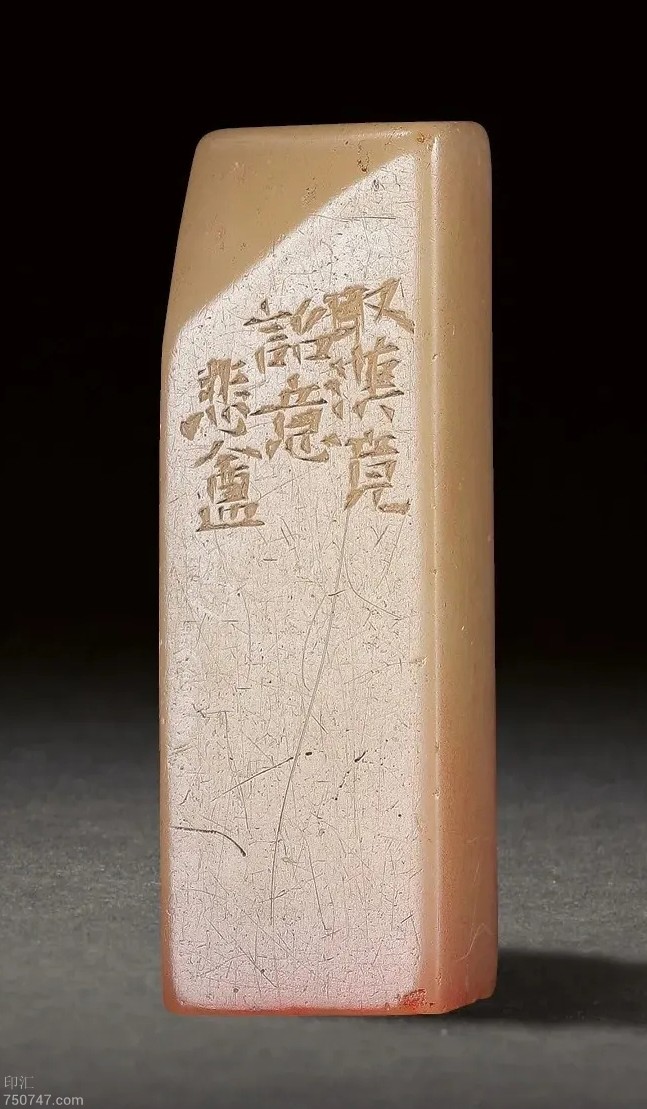 取漢竟
詺意
悲盦
印汇
750747.com